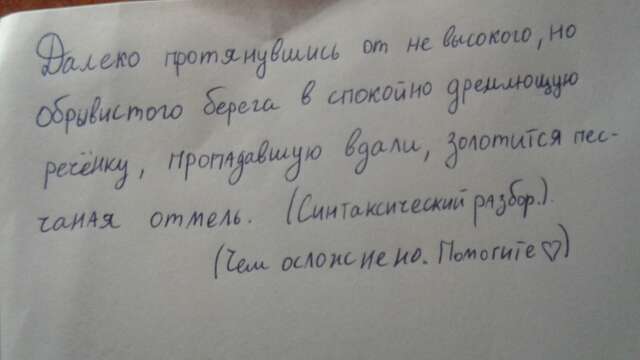 Далеко протянувшись от не высокого, но
обрывистого берега в спокойно дремлющую
речёнку, пропадавшую вдали, золотится пес-
чаная отмель. (Синтаксический разбор.).
(Чем осложнено. Помогите♡)